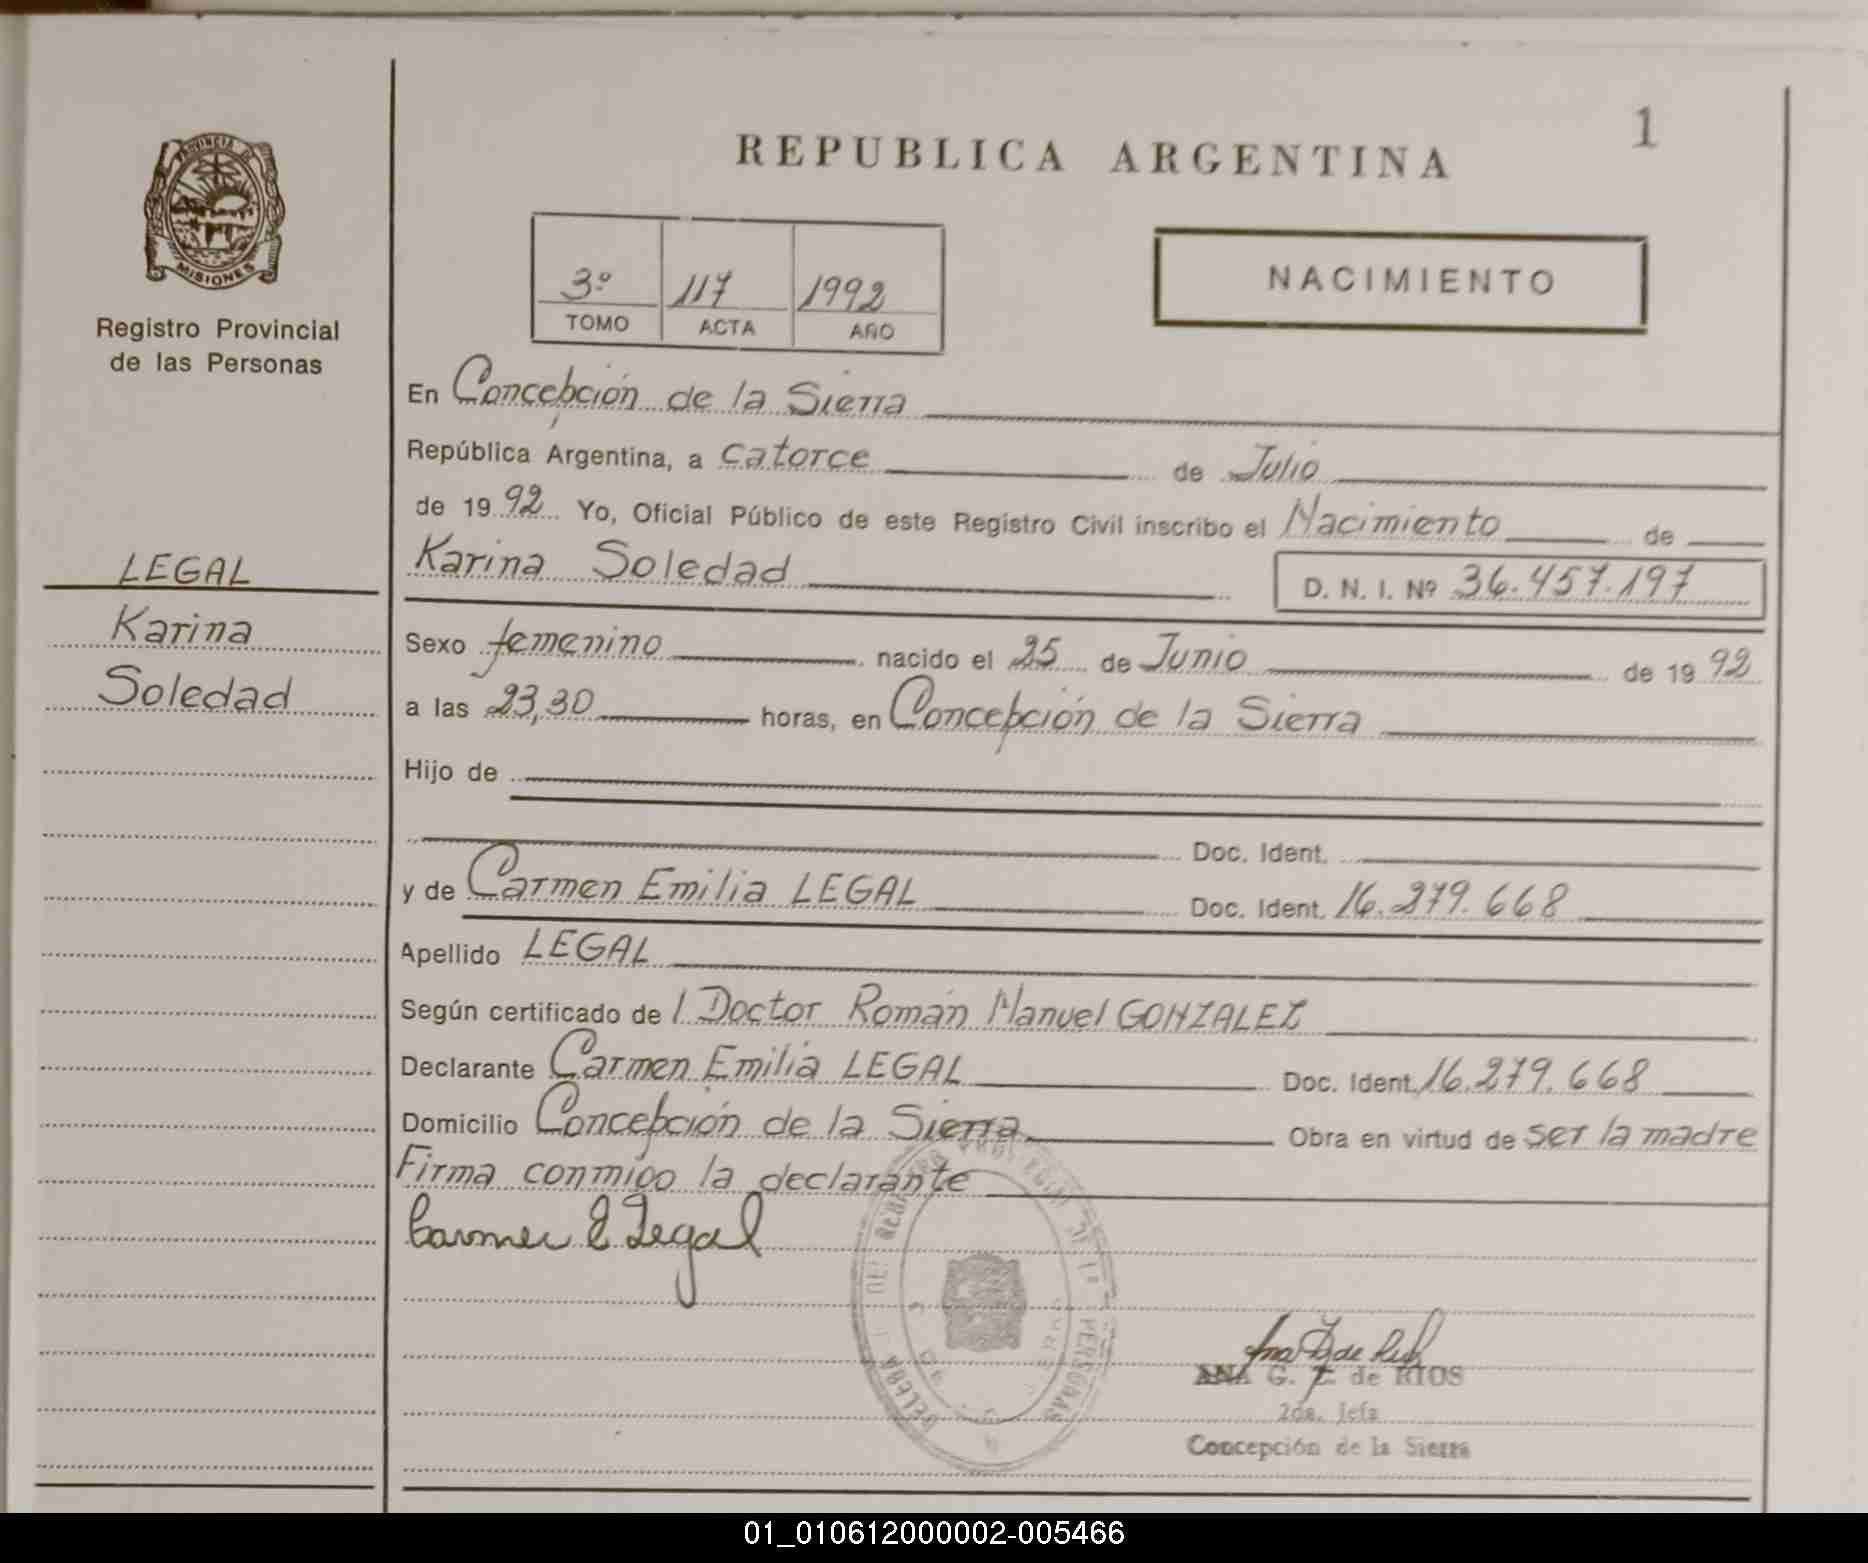 PROVINCIA DE
MISIONES
Registro Provincial
de las Personas
LEGAL
Karina
Soledad
1
REPUBLICA ARGENTINA
3º 117 1992
TOMO ACTA AÑO
NACIMIENTO
En Concepción de la Sierra
República Argentina, a catorce de Julio
de 19 92 Yo, Oficial Público de este Registro Civil inscribo el Nacimiento de
Karina Soledad D. N. I. Nº 36.457.197
Sexo femenino nacido el 25 de Junio de 19 92
a las 23,30 horas, en Concepción de la Sierra
Hijo de
Doc. Ident.
y de Carmen Emilia LEGAL Doc. Ident. 16.279.668
Apellido LEGAL
Según certificado de l Doctor Román Manuel GONZALEZ
Declarante Carmen Emilia LEGAL Doc. Ident. 16.279.668
Domicilio Concepción de la Sierra Obra en virtud de ser la madre
Firma conmigo la declarante
Carmen E Legal
ANA G. Z. de RIOS
2da. Jefa
Concepción de la Sierra
01_010612000002-005466